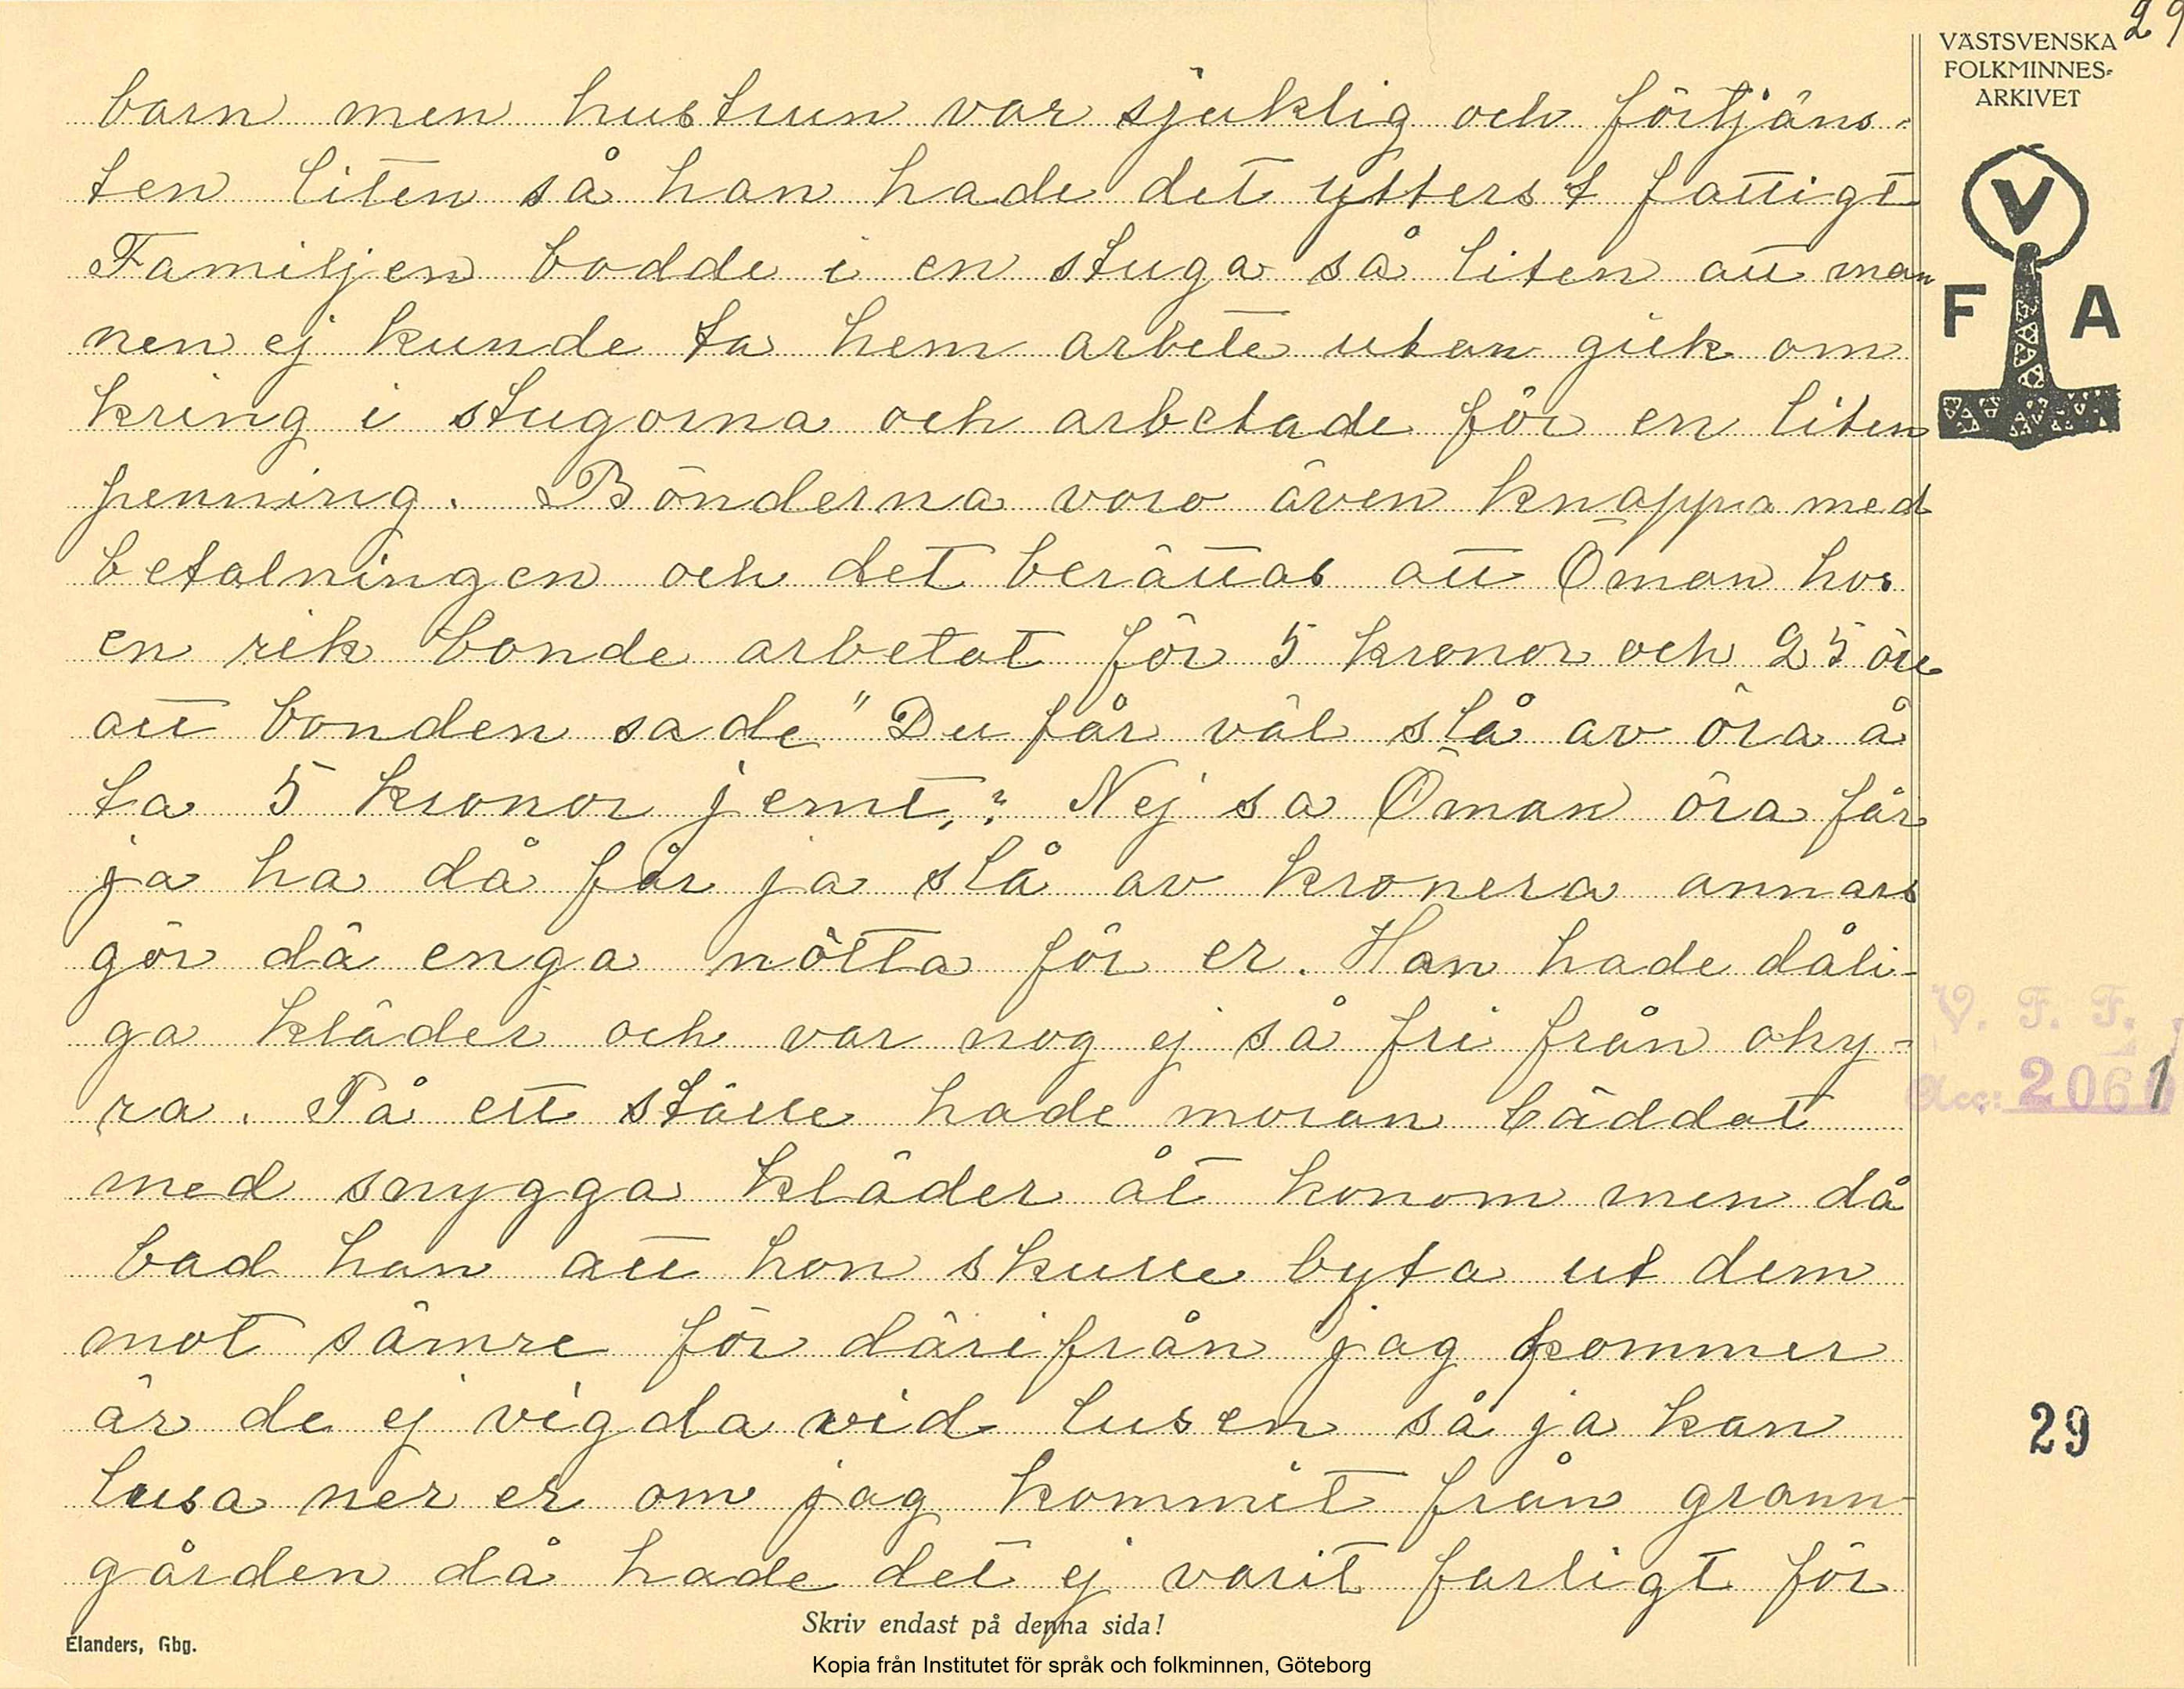 29
VÄSTSVENSKA
FOLKMINNES-
ARKIVET
V
F A
barn men hustrun var sjuklig och förtjäns-
ten liten så han hade det ytterst fattigt
Familjen bodde i en stuga så liten att man
nen ej kunde ta hem arbete utan gick om
kring i stugorna och arbetade för en liten
penning. Bönderna voro även knappa med
betalningen och det berättas att Öman hos
en rik bonde arbetat för 5 kronor och 25 öre
att bonden sade "Du får väl slå av öra å
ta 5 kronor jemt,? Nej sa Öman öra får
ja ha då får ja slå av kronera annars
gör dä enga nötta för er. Han hade dåli-
ga kläder och var nog ej så fri från ohy-
ra. På ett ställe hade moran bäddat
med snygga kläder åt honom men då
bad han att hon skulle byta ut dem
mot sämre för därifrån jag kommer
är de ej vigda vid lusen så ja kan
lusa ner er om jag kommit från grann-
gården då hade det ej varit farligt för
V. F. F.
Acc: 2061
29
Skriv endast på denna sida!
Elanders, Gbg.
Kopia från Institutet för språk och folkminnen, Göteborg